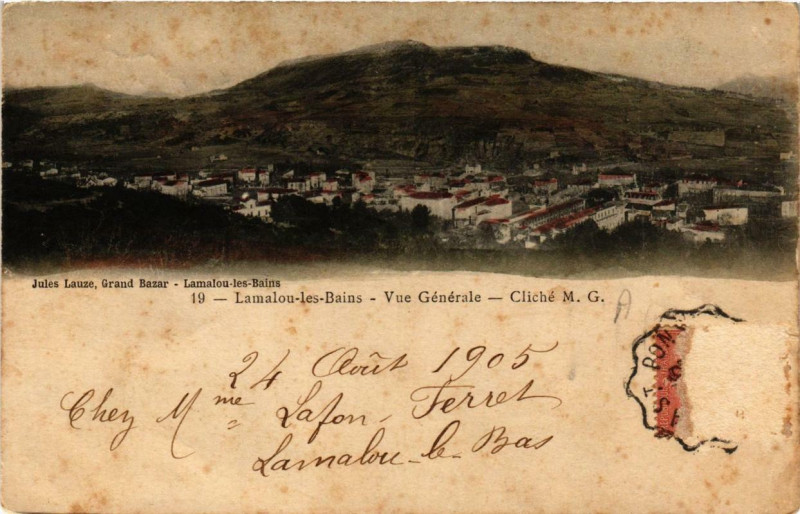 Jules Lauze, Grand Bazar - Lamalou-les-Bains
19 — Lamalou-les-Bains - Vue Générale — Cliché M. G.
24 Août 1905
Chez Mme Lafon-Ferret
Lamalou-le-Bas
ST. PON